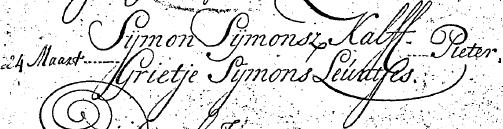 Symon Symonsz Kalff
24 Maart Pieter.
Grietje Symons Leúntjes.